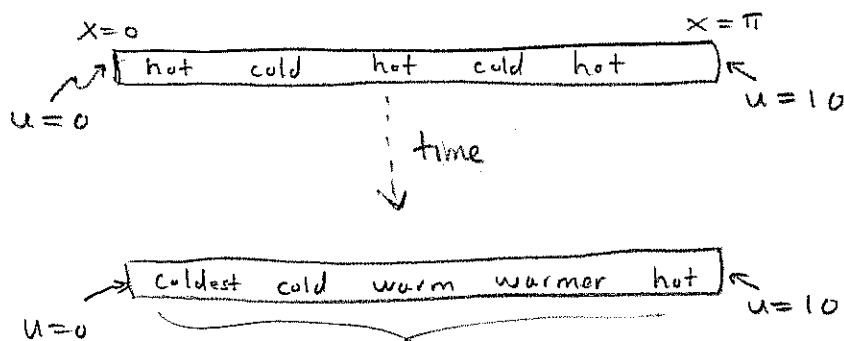 x=0 x=π
hot cold hot cold hot
u=0 u=10
time
coldest cold warm warmer hot
u=0 u=10